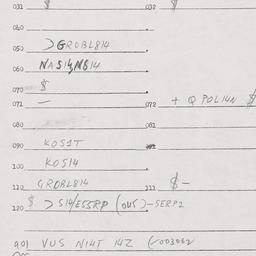 031 $ 032 $
040
050 >GROBL814
060 NASI4NB14
070 $
071 — 072 + Q POL14N $
080 081
090 KOS1T
100 KOS14
110 GROBL814 111 $-
120 $ > S14/ESSRP (OUS)-SERP2
901 VUS N14T 14Z